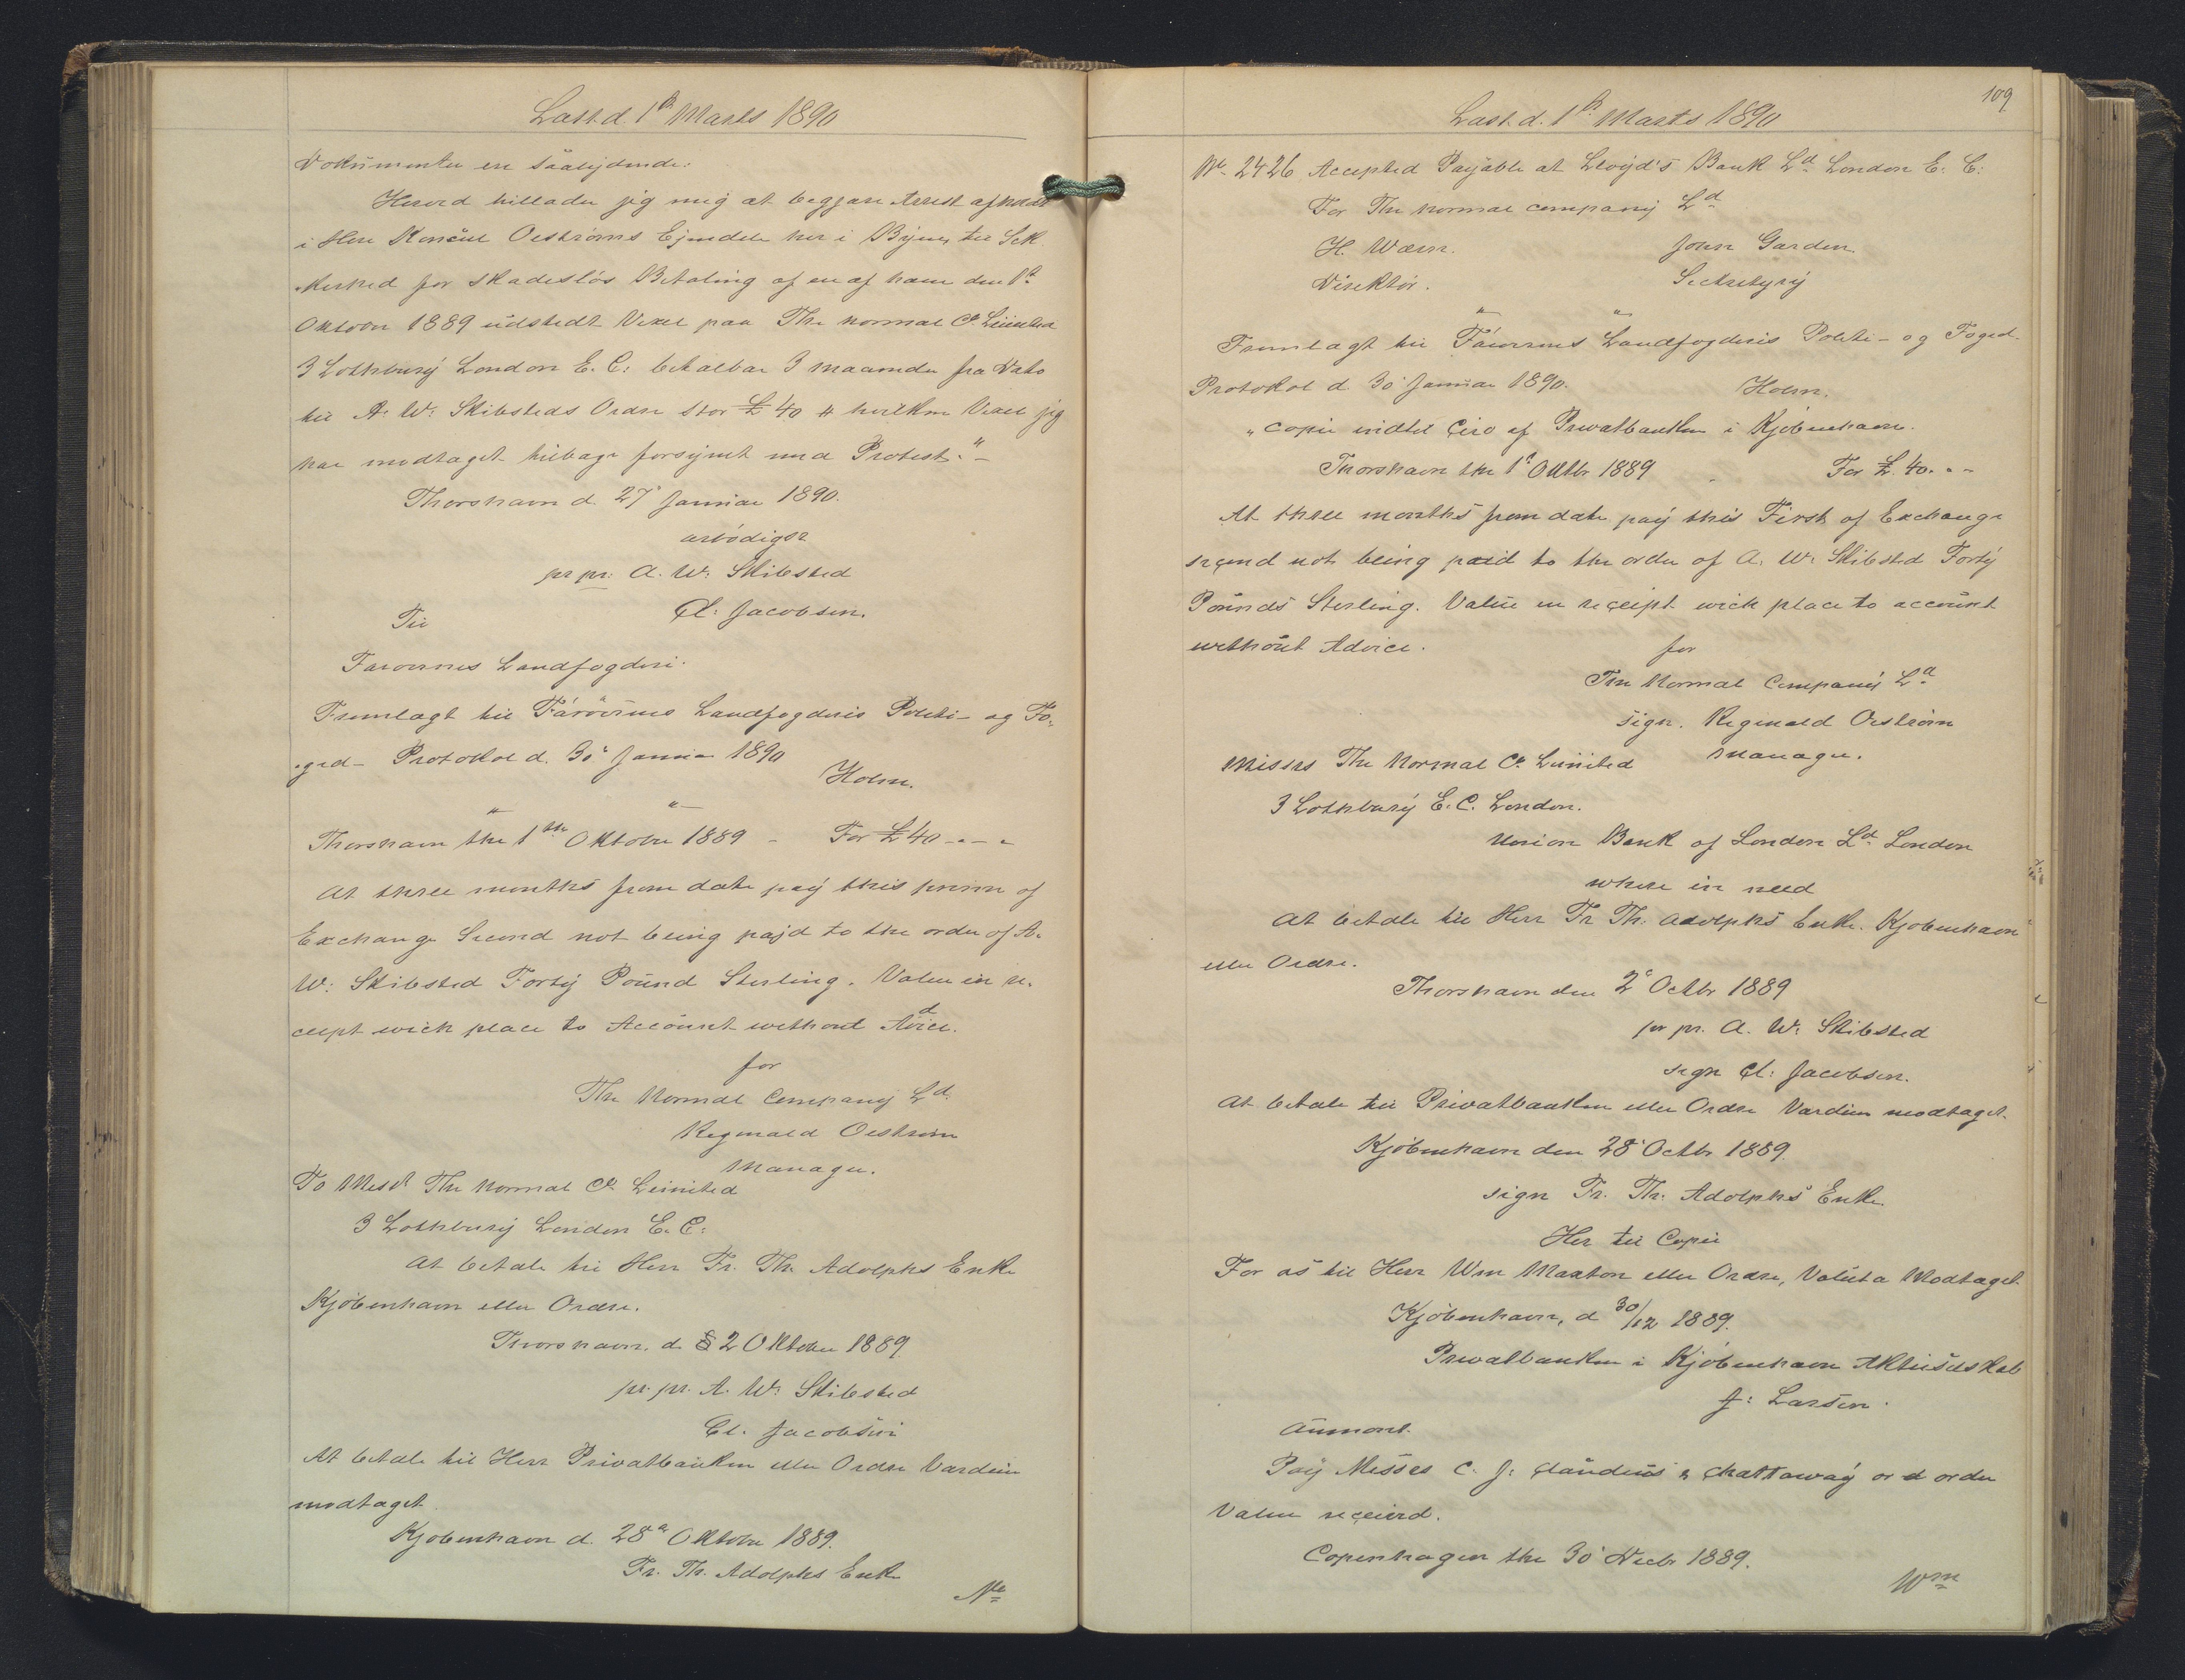 Læst d. 1ste Marts 1890
Dokumenter er saalydende:
Herved tillader jeg mig at begjære Arrest afholdt
i Herr Konsul Oeströms Ejendele her i Byen, til Sik-
kerhed for skadeslös Betaling af en af ham den 1ste
Oktober 1889 udstedt Vexel paa The Normal Co Limited
3 Lothbury London E. C: betalbar 3 maaneder fra Dato
til A: W: Skibsteds Ordre stor £ 40 " hvilken Vexel jeg
har modtaget tilbage forsynet med Protest." -
Thorshavn d. 27' Januar 1890.
ærbödigst
pr pr: A. W: Skibsted
Cl: Jacobsen.
Til
Færøernes Landfogderi.
Fremlagt til Færöernes Landfogderis Politi- og Fo-
ged- Protokol d. 30' Januar 1890
Holm.
" "
Thorshavn the 1ste Oktober 1889 - For £ 40 - " - "
At three months from date pay this prima of
Exchange Second not being pajd to the order of A.
W: Skibsted Forty Pound Sterling. Value in re-
ceipt wich place to Account without Advice.
for
The Normal Company Ld.
Reginald Oeström
Manager.
To Messrs The Normal Co Limited
3 Lothbury London E. C:
At betale til Herr Fr. Th. Adolphs Enke
Kjöbenhavn eller Ordre.
Thorshavn, d 2 Oktober 1889
pr. pr. A. W: Skibsted
Cl. Jacobsen
At betale til Herr Privatbanken eller Ordre Værdien
modtaget.
Kjöbenhavn d. 28de Oktober 1889.
Fr. Th. Adolphs Enke
No
109
Læst d. 1ste Marts 1890
No 2426 Accepted Payable at Lloyd's Bank Ld London E. C:
For The Normal Company Ld
H. Wærn. John Garden
Direktör. Secketyry
" "
Fremlagt til Færöernes Landfogderis Politi- og Foged-
Protokol d. 30' Januar 1890. Holm.
" Copie indtil Giro af Privatbanken i Kjöbenhavn.
Thorshavn the 1' Oktbr 1889 - For £. 40. " -
At three months from date pay this First of Exchange
second not being paid to the order of A. W: Skibsted Forty
Pounds Sterling. Value in receipt wich place to account
without Advice.
for
The Normal Company Ld
sign. Reginald Oeström
Manager.
Missrs The Normal Co Limited
3 Lothbury E. C. London.
Union Bank of London Ld. London
where in need
At betale til Herr Fr Th. Adolphs Enke. Kjöbenhavn
eller Ordre.
Thorshavn den 2' Octbr 1889
pr pr. A. W: Skibsted
sign Cl: Jacobsen.
At betale til Privatbanken eller Ordre Værdien modtaget.
Kjöbenhavn den 28' Octbr 1889.
sign Fr. Th. Adolphs' Enke
Her til Copie
For os til Herr Wm Maxton eller Ordre, Valuta Modtaget.
Kjöbenhavn, d 30/12 1889.
Privatbanken i Kjöbenhavn Aktieselskab
J: Larsen.
Aumont.
Pay Messrs C. J: Claudius & Chattaway or order
Value received.
Copenhagen the 30' Decbr 1889.
Wm